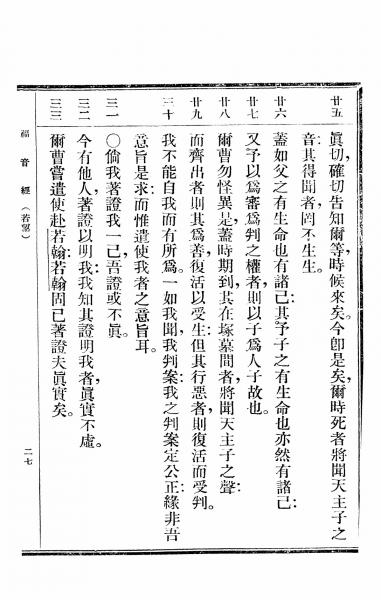 廿五
眞切,確切告知爾等,時候來矣。今卽是矣,爾時死者將聞天主子之
音:其得聞者,罔不生生。
廿六
蓋如父之有生命也有諸己:其予子之有生命也亦然有諸己:
廿七
又予以爲審爲判之權者,則以子爲人子故也。
廿八
爾曹勿怪異是,蓋時期到,其在塚墓間者,將聞天主子之聲:
廿九
而齊出者則其爲善,復活以受生:但其行惡者則復活而受判。
三十
我不能自我而有所爲。一如我聞,我判案:我之判案定公正,緣非吾
意旨是求:而惟遣使我者之意旨耳。
三一
〇倘我著證我一己,吾證或不眞。
三二
今有他人,著證以明我:我知其證明我者,眞實不虛。
三三
爾曹嘗遣使赴若翰:若翰固已著證夫眞實矣。
福音經(若翰)
二七